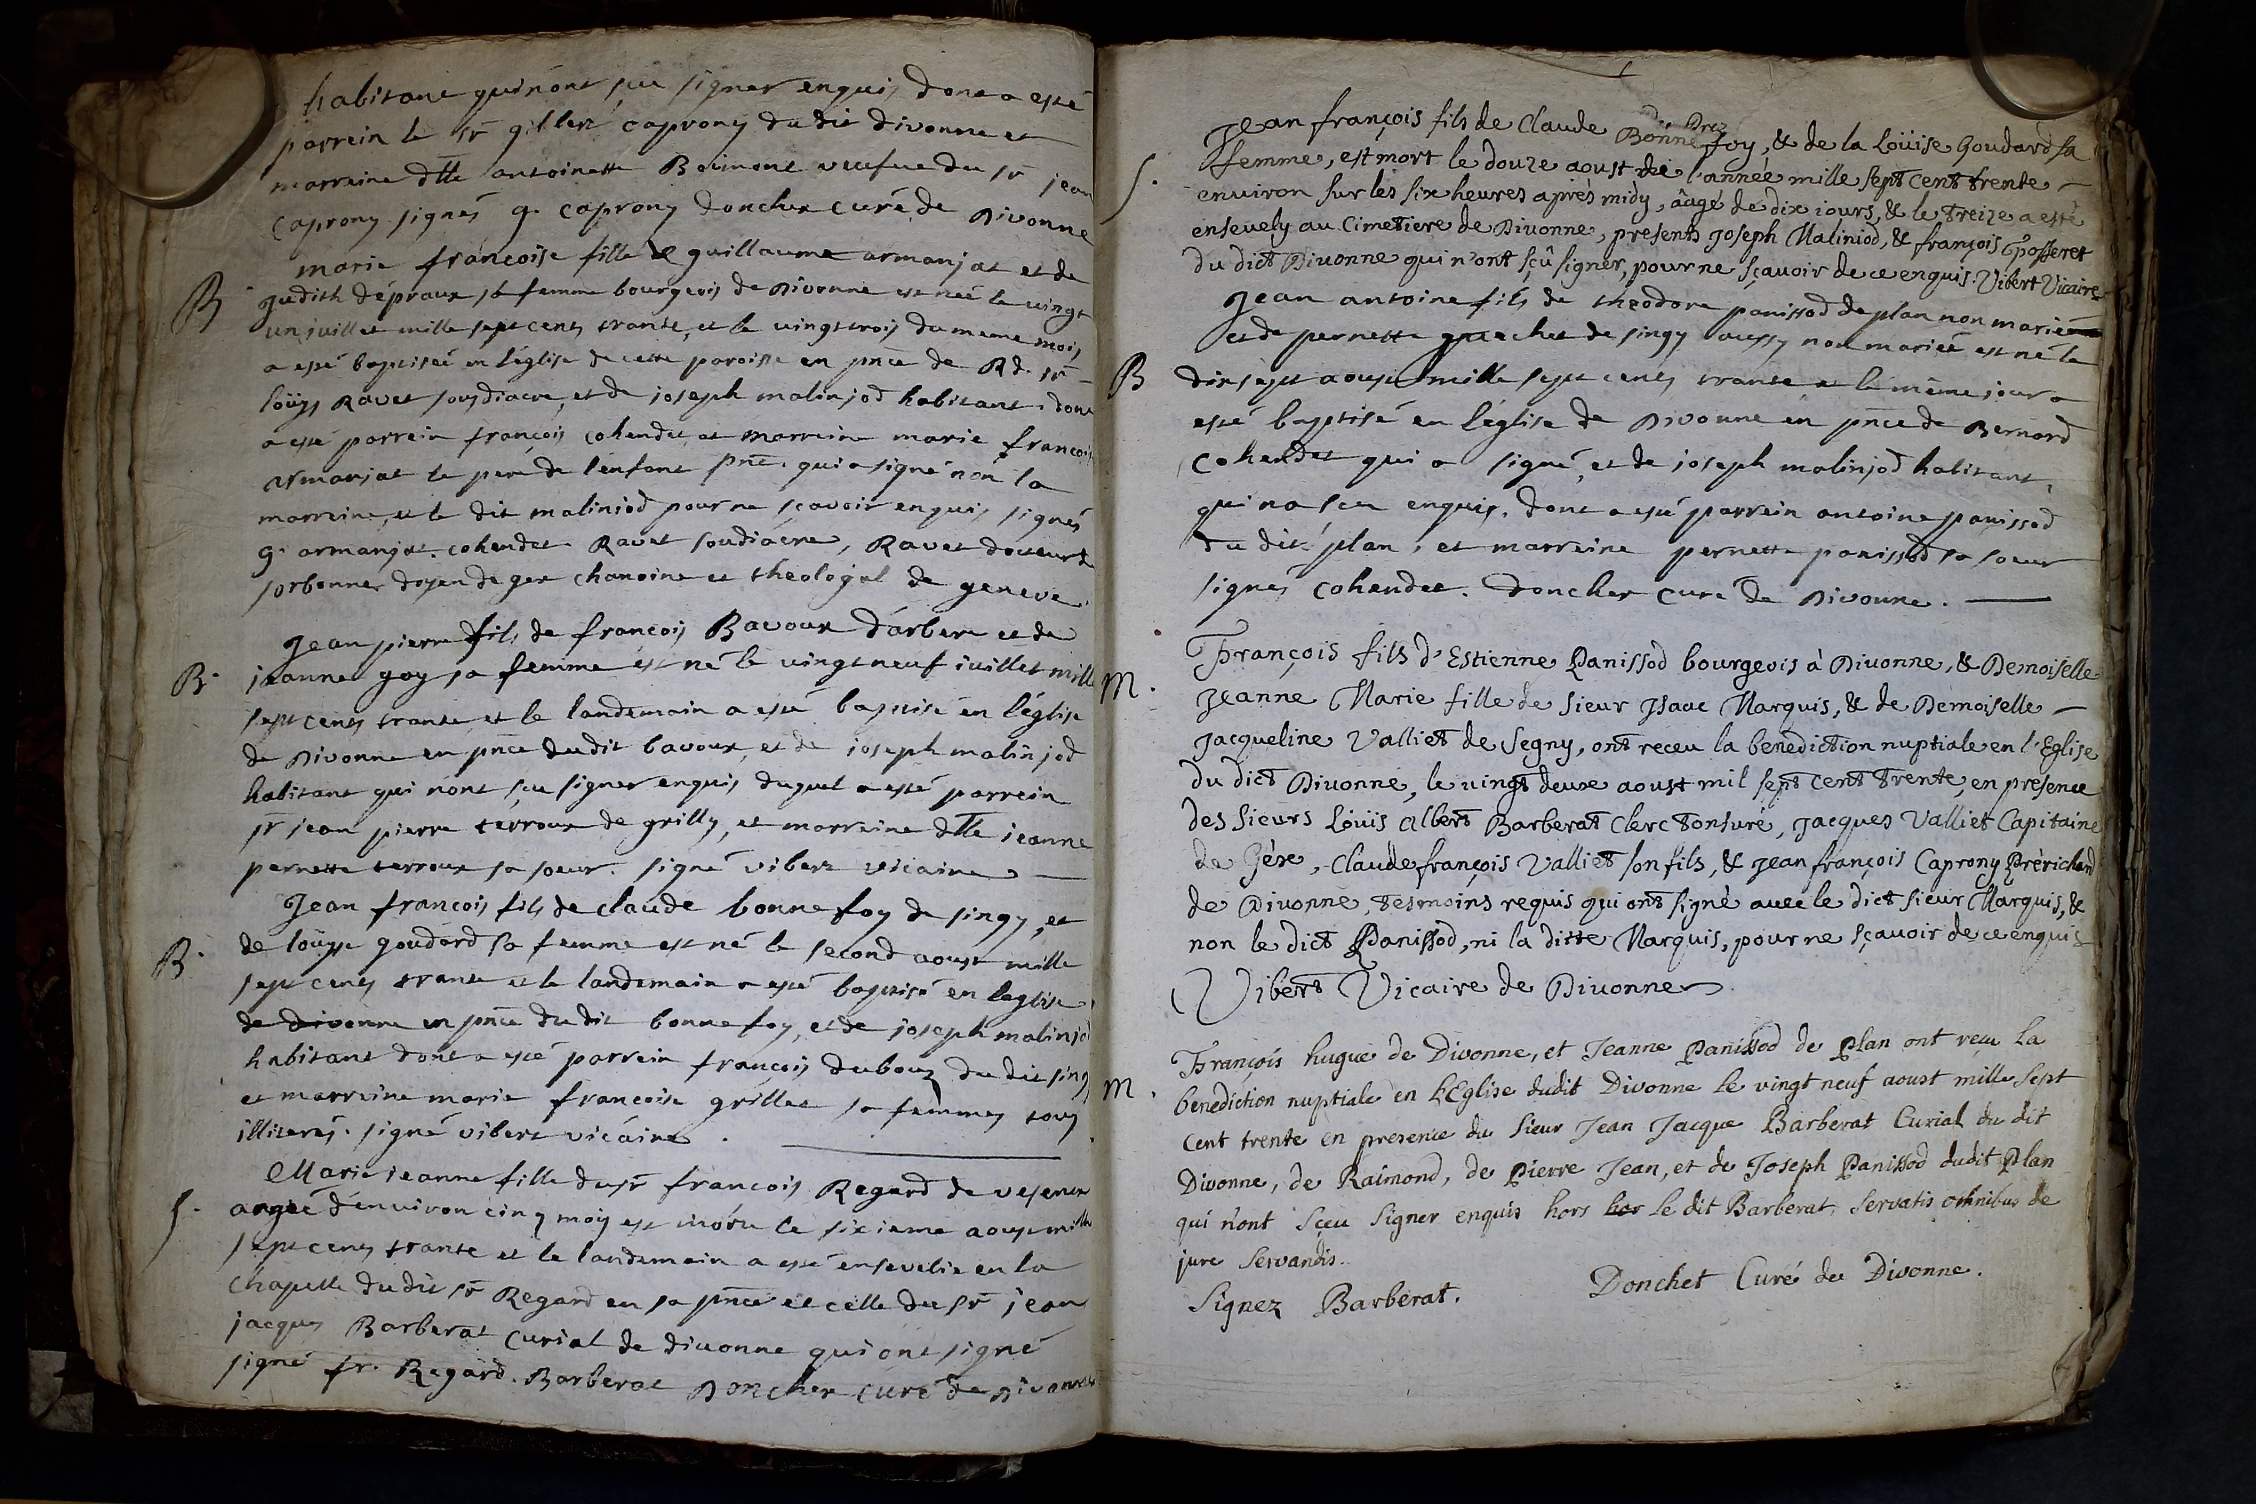 habitant qui nónt sceu signer enquis dont a esté
parrein le sr gillert caprony du dit divonne et
marraine dlle antoinette Boimont veufve du sr jean
caprony signés g. caprony donchet curé de Divonne
B
marie francoise fille de guillaume armanjat et de
Judith dépraux sa femme bourgeois de Divonne est née le vingt
un juillet mille sept cents trante, et le vingt trois du meme mois
a esté baptiseé en léglise de cette paroisse en pnce de Rd. sr
loüys Ravet sousdiacre, et de joseph malinjod habitant. dont
a esté parrein françois cohendet et marreine marie francoise
armanjat le pere de lénfant pnt. qui a signé non la
marreine, et le dit malinjod pour ne sçavoir enquis signés
g. armanjat. cohendet. Ravet soudiacre, Ravet docteur de
sorbonne doyen de gex chanoine et theologal de geneve.
B.
Jean pierre fils de francois Bavoux dárbere et de
jeanne goy sa femme est né le vingt neuf juillet mille
sept cents trante et le landemain a esté baptisé en léglise
de Divonne en pnce dudit bavoux, et de joseph malinjod
habitant qui nónt sçu signer enquis duquel a esté parrein
sr jean pierre terroux de grilly, et marreine dlle jeanne
pernette terroux sa soeur. signé vibert vicaire
B.
Jean françois fils de claude bonnefoy de singy, et
de loüyse goudard sa femme est né le second aoust mille
sept cents trante et le landemain a esté baptisé en léglise
de divonne en pnce du dit bonnefoy, et de joseph malinjod
habitant dont a esté parrein françois dubouz du dit singy
et marreine marie francoise grillet sa femme, tous
illiterés. signé vibert vicáire.
S.
Marie jeanne fille du sr francois Regard de vesenex
ageé dénviron cinq mois est morte le sixieme aoust mille
sept cents trante et le landemain a esté ensevelie en la
chapelle du dit sr Regard en sa pnce et celle du sr jean
jacques Barberat curial de divonne qui ont signé
signé fr. Regard. Barberat Donchet curé de Divonne
S.
Jean françois fils de Claude Bonnefoy, & de la Loüise Goudard sa
femme, est mort le douze aoust de l'année mille sept cent trente
environ sur les six heures aprés midy, âagé de dix iours, & le treize a esté
ensevely au Cimetiere de Diuonne, presents Joseph Maliniod, & françois Grosseret
du dict Diuonne qui n'ont sçû signer, pour ne sçavoir de ce enquis. Vibert Vicaire
B
Jean antoine fils de théodore panissod de plan non marié
et de pernette gruechet de singy aussy non mariée est né le
dix sept aoust mille sept cents trante et le même jour a
esté baptisé en léglise de Divonne en pnce de Bernard
Cohendet qui a signé, et de joseph malinjod habitant,
qui na sceu enquis. dont a esté parrein antoine panissod
du dit plan, et marreine pernette panissod sa soeur
signés Cohendet. Donchet curé de Divonne.
M.
François fils d'Estienne Panissod bourgeois à Diuonne, & Demoiselle
Jeanne Marie fille de sieur Isaac Marquis, & de Demoiselle
Jacqueline Valliet de Segny, ont receu la benediction nuptiale en l'Eglise
du dict Diuonne, le vingt deux aoust mil sept cent trente, en présence
des Sieurs Loüis Albert Barberat Clerc tonsuré, Jacques Valliet Capitaine
de Gex, Claude françois Valliet son fils, & Jean françois Caprony Prérichard
de Diuonne, tesmoins requis qui ont signé avec le dict sieur Marquis, &
non le dict Panissod, ni la ditte Marquis, pour ne sçavoir de ce enquis
Vibert Vicaire de Diuonne
M.
François hugue de Divonne, et Jeanne Panissod de Plan ont reçu la
benediction nuptiale en L'Eglise dudit Divonne le vingt neuf aoust mille sept
cent trente en presence du Sieur Jean Jacque Barberat Curial du dit
Divonne, de Raimond, de Pierre Jean, et de Joseph Panissod dudit Plan
qui n'ont sçeu Signer enquis hors hor le dit Barberat, Servatis omnibus de
jure Servandis.
Signez Barberat. Donchet Curé de Divonne.